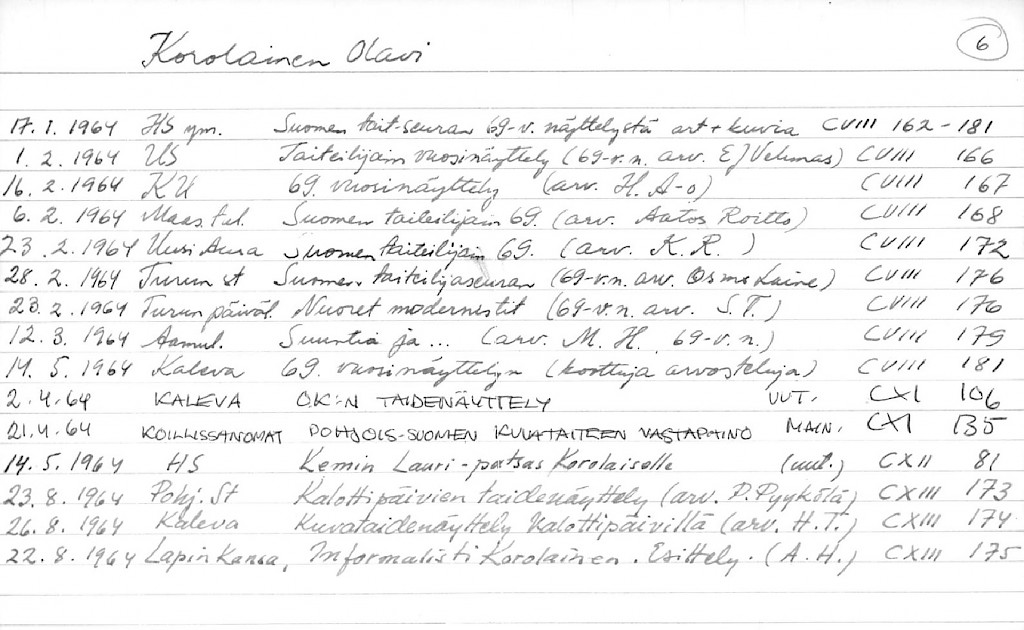 Korolainen Olavi 6
17. 1. 1964 HS ym. Suomen tait-seuran 69-v. näyttelystä art + kuvia CVIII 162-181
1. 2. 1964 US Taiteilijain vuosinäyttely (69-v.n. arv. EJ Vehmas) CVIII 166
16. 2. 1964 KU 69. vuosinäyttely (arv. H. A-o) CVIII 167
6. 2. 1964 Maas. tul. Suomen taiteilijain 69. (arv. Aatos Roitto) CVIII 168
23. 2. 1964 Uusi Aura Suomen taiteilijain 69. (arv. K. R.) CVIII 172
28. 2. 1964 Turun st Suomen taiteilijaseuran (69-v.n. arv. Osmo Laine) CVIII 176
23. 2. 1964 Turun päiväl. Nuoret modernistit (69-v.n. arv. S. T.) CVIII 176
12. 3. 1964 Aamul. Suuntia ja ... (arv. M. H. 69-v. n.) CVIII 179
14. 5. 1964 Kaleva 69. vuosinäyttelyn (koottuja arvosteluja) CVIII 181
2. 4. 64 KALEVA OK:N TAIDENÄYTTELY UUT. CXI 106
21. 4. 64 KOILLISSANOMAT POHJOIS-SUOMEN KUVATAITEEN VASTAPAINO MAIN. CXI 135
14. 5. 1964 HS Kemin Lauri-patsas Korolaiselle (uut.) CXII 81
23. 8. 1964 Pohj. St Kalottipäivien taidenäyttely (arv. P. Pyykötä) CXIII 173
26. 8. 1964 Kaleva Kuvataidenäyttely Kalottipäivillä (arv. H. T.) CXIII 174
22. 8. 1964 Lapin Kansa, Informalisti Korolainen. Esittely. (A. H.) CXIII 175